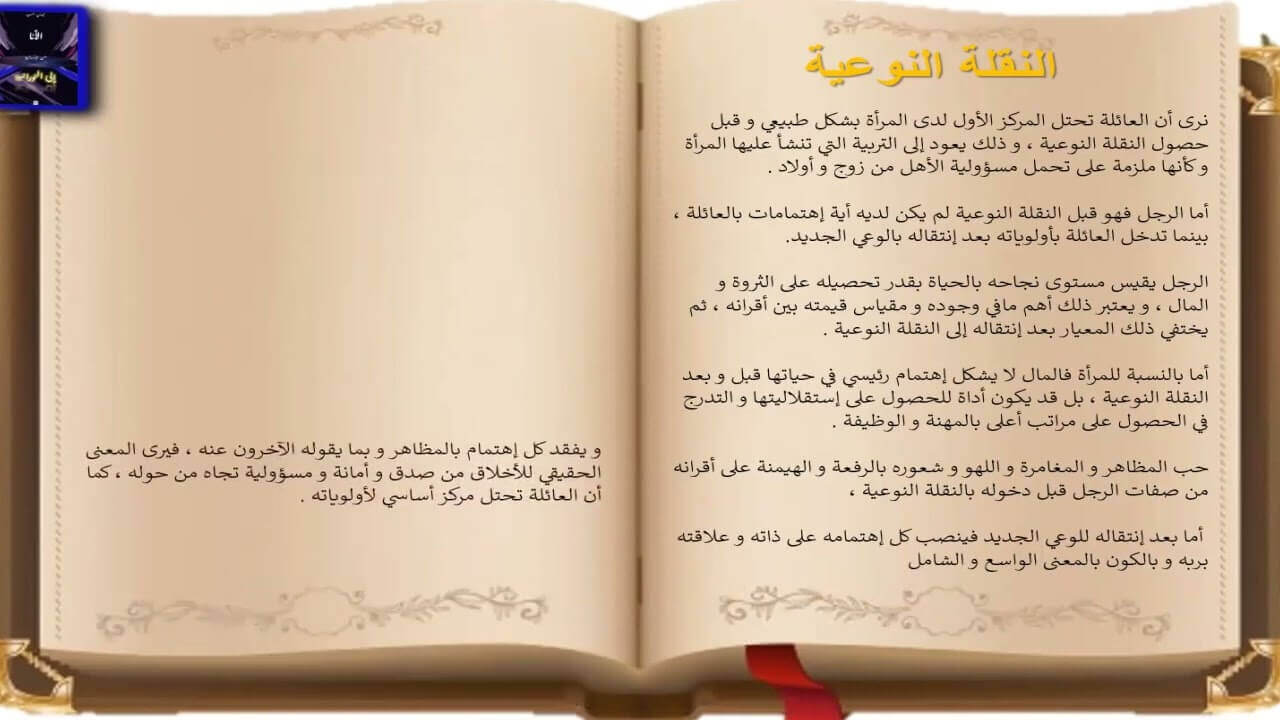 النقلة النوعية
نرى أن العائلة تحتل المركز الأول لدى المرأة بشكل طبيعي و قبل
حصول النقلة النوعية ، و ذلك يعود إلى التربية التي تنشأ عليها المرأة
وكأنها ملزمة على تحمل مسؤولية الأهل من زوج و أولاد .
أما الرجل فهو قبل النقلة النوعية لم يكن لديه أية إهتمامات بالعائلة ،
بينما تدخل العائلة بأولوياته بعد إنتقاله بالوعي الجديد.
الرجل يقيس مستوى نجاحه بالحياة بقدر تحصيله على الثروة و
المال ، و يعتبر ذلك أهم مافي وجوده و مقياس قيمته بين أقرانه ، ثم
يختفي ذلك المعيار بعد إنتقاله إلى النقلة النوعية .
أما بالنسبة للمرأة فالمال لا يشكل إهتمام رئيسي في حياتها قبل و بعد
النقلة النوعية ، بل قد يكون أداة للحصول على إستقلاليتها و التدرج
في الحصول على مراتب أعلى بالمهنة و الوظيفة .
حب المظاهر و المغامرة و اللهو و شعوره بالرفعة و الهيمنة على أقرانه
من صفات الرجل قبل دخوله بالنقلة النوعية ،
أما بعد إنتقاله للوعي الجديد فينصب كل إهتمامه على ذاته و علاقته
بربه و بالكون بالمعنى الواسع و الشامل
و يفقد كل إهتمام بالمظاهر و بما يقوله الآخرون عنه ، فيرى المعنى
الحقيقي للأخلاق من صدق و أمانة و مسؤولية تجاه من حوله ، كما
أن العائلة تحتل مركز أساسي لأولوياته .
الأنا